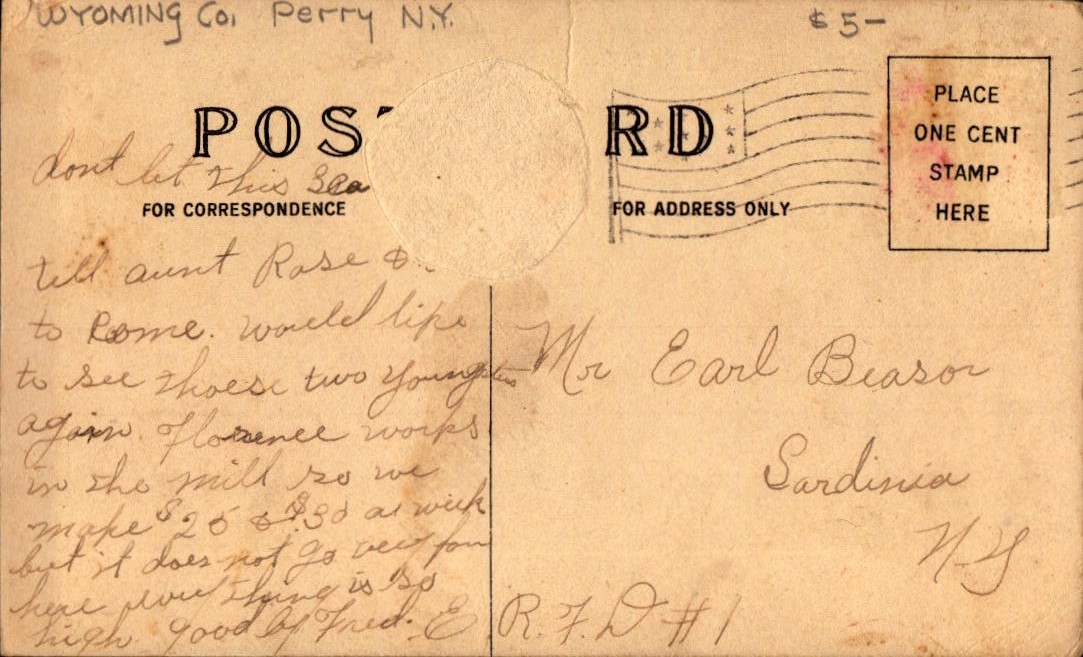 WYOMING Co. Perry N.Y.
$5-
POST RD
PLACE
ONE CENT
STAMP
HERE
dont let this
FOR CORRESPONDENCE
FOR ADDRESS ONLY
tell aunt Rose &
to Come. would like
to see thoese two Youngsters
again. Florence works
in the mill so we
make $25 & $30 a week
but it does not go very far
here every thing is so
high. good by Fred. E.
Mr Earl Beasor
Sardinia
N-Y
R.F.D #1